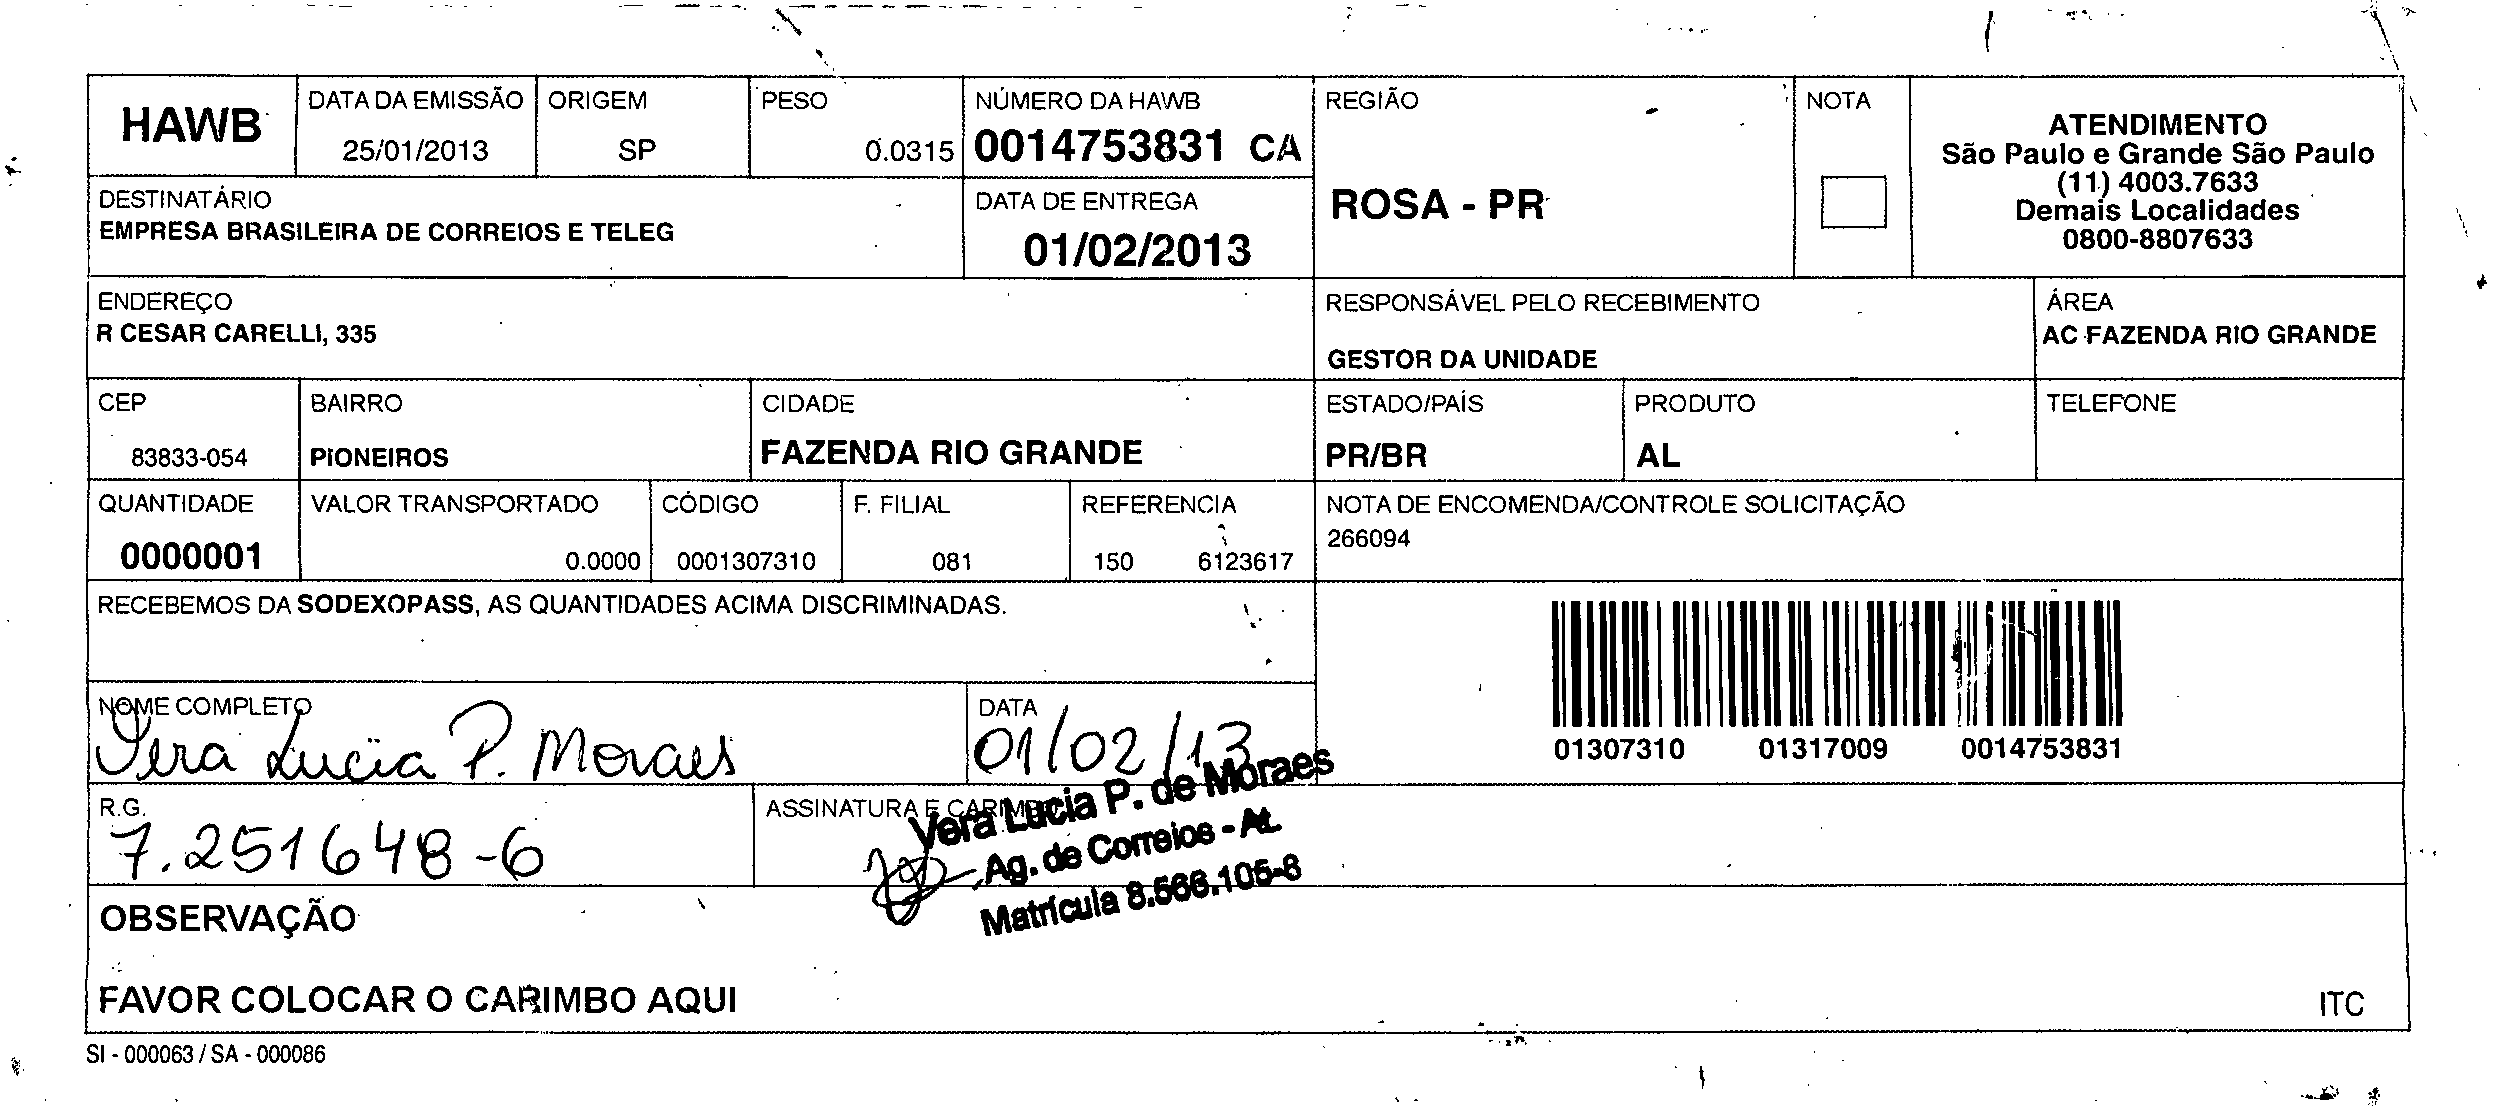 HAWB
DATA DA EMISSÃO
25/01/2013
ORIGEM
SP
PESO
0.0315
NÚMERO DA HAWB
0014753831 CA
REGIÃO
ROSA - PR
NOTA
ATENDIMENTO
São Paulo e Grande São Paulo
(11) 4003.7633
Demais Localidades
0800-8807633
DESTINATÁRIO
EMPRESA BRASILEIRA DE CORREIOS E TELEG
DATA DE ENTREGA
01/02/2013
ENDEREÇO
R CESAR CARELLI, 335
RESPONSÁVEL PELO RECEBIMENTO
GESTOR DA UNIDADE
ÁREA
AC FAZENDA RIO GRANDE
CEP
83833-054
BAIRRO
PIONEIROS
CIDADE
FAZENDA RIO GRANDE
ESTADO/PAÍS
PR/BR
PRODUTO
AL
TELEFONE
QUANTIDADE
0000001
VALOR TRANSPORTADO
0.0000
CÓDIGO
0001307310
F. FILIAL
081
REFERENCIA
150 6123617
NOTA DE ENCOMENDA/CONTROLE SOLICITAÇÃO
266094
RECEBEMOS DA SODEXOPASS, AS QUANTIDADES ACIMA DISCRIMINADAS.
01307310 01317009 0014753831
NOME COMPLETO
Vera Lucia P. Moraes
DATA
01/02/13
R.G.
7.251648-6
ASSINATURA E CARIMBO
Vera Lucia P. de Moraes
Ag. de Correios - At.
Matrícula 8.566.105-8
OBSERVAÇÃO
FAVOR COLOCAR O CARIMBO AQUI
ITC
SI - 000063 / SA - 000086